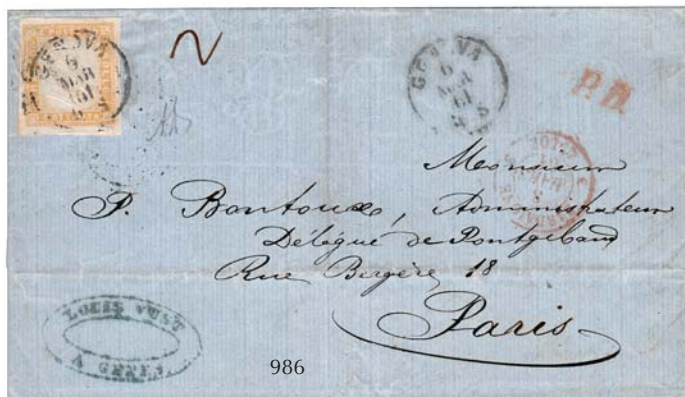 GENOVA
6
MAR
61
GENOVA
6
MAR
61
3 S
P.D.
Monsieur
P. Bontoux, Administrateur
Délégué de Pontgibaud
Rue Bergère 18
Paris
LOUIS VUST
A GENES
986